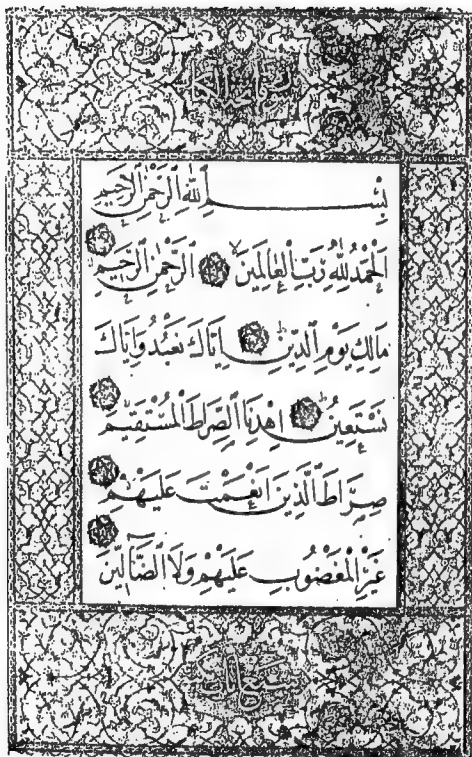 بِسْمِ اللّٰهِ الرَّحْمٰنِ الرَّحِيمِ
اَلْحَمْدُ لِلّٰهِ رَبِّ الْعَالَمِينَ اَلرَّحْمٰنِ الرَّحِيمِ
مَالِكِ يَوْمِ الدِّينِ اِيَّاكَ نَعْبُدُ وَاِيَّاكَ
نَسْتَعِينُ اِهْدِنَا الصِّرَاطَ الْمُسْتَقِيمَ
صِرَاطَ الَّذِينَ اَنْعَمْتَ عَلَيْهِمْ
غَيْرِ الْمَغْضُوبِ عَلَيْهِمْ وَلَا الضَّٓالِّينَ